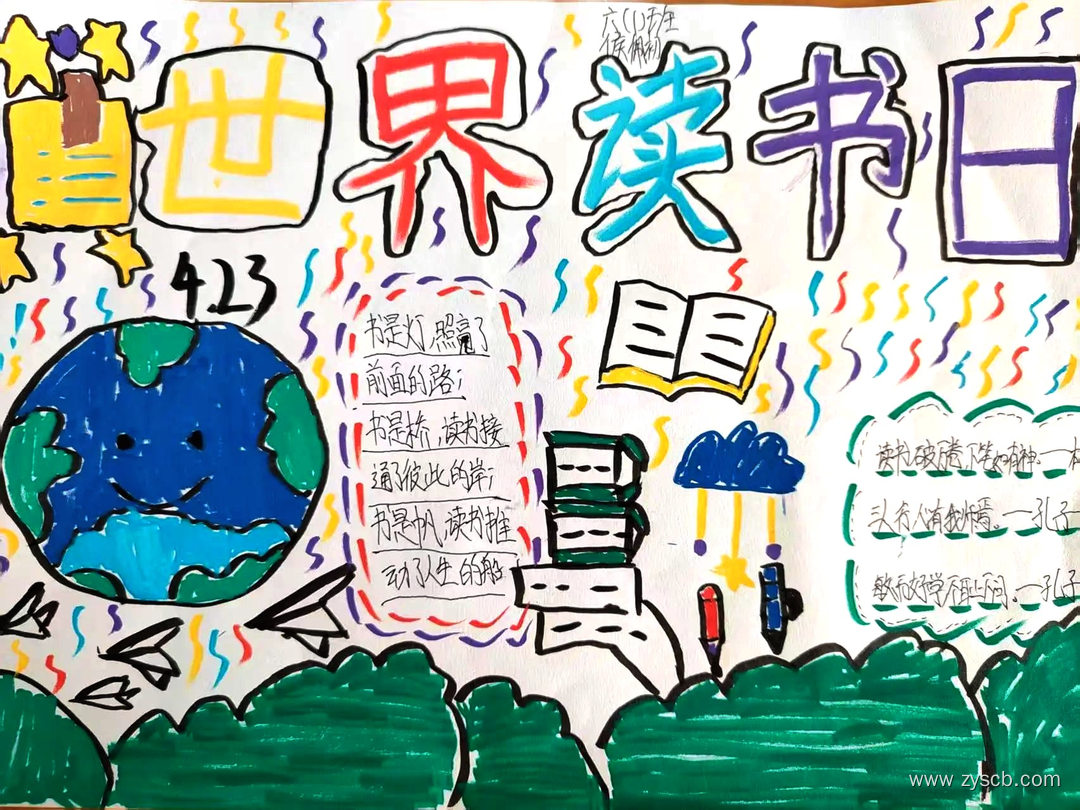 六(1)班
世界读书日
4.23
书是灯,照亮了
前面的路;
书是桥,读书接
通了彼此的岸;
书是帆,读书推
动了人生的船
读书破万卷下笔如有神.一杜
人有我师焉。一孔子
敏而好学不耻下问.一孔子
www.zyscb.com